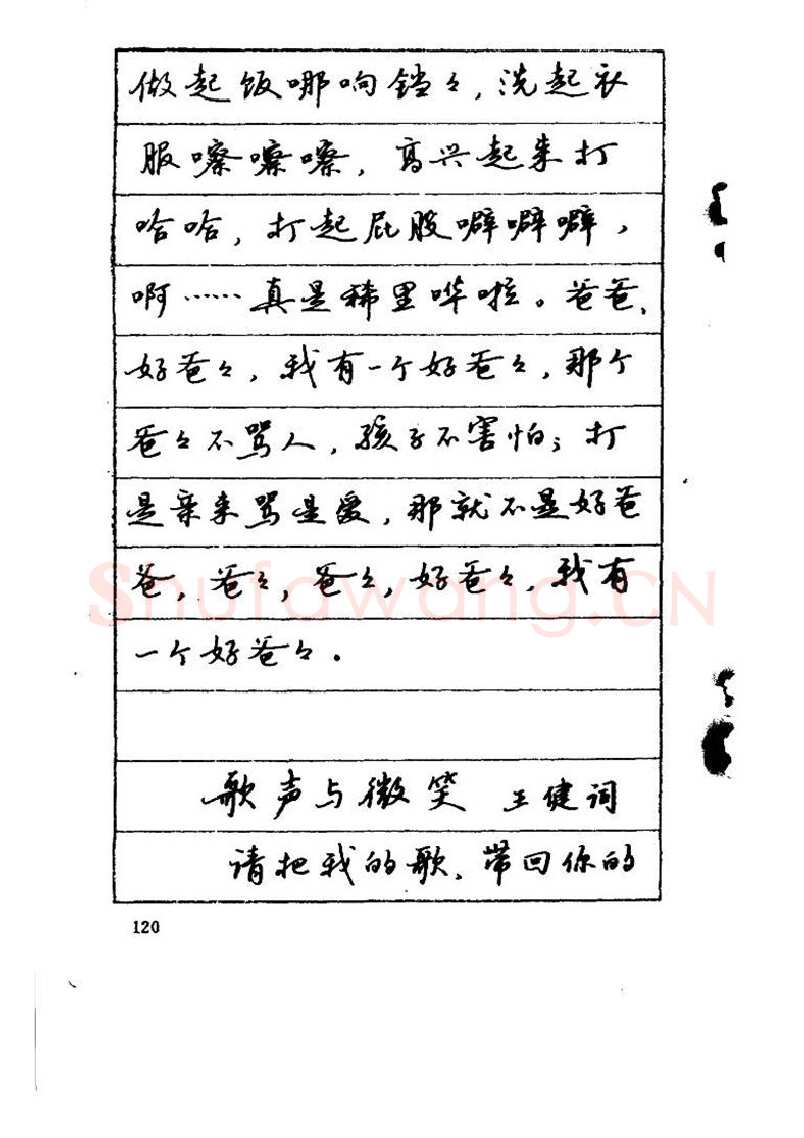 做起饭哪响铛々，洗起衣
服嚓嚓嚓，高兴起来打
哈哈，打起屁股噼噼噼，
啊……真是稀里哗啦。爸爸、
好爸々，我有一个好爸々，那个
爸々不骂人，孩子不害怕；打
是亲来骂是爱，那就不是好爸
爸，爸々，爸々，好爸々，我有
一个好爸々。
歌声与微笑 王健词
请把我的歌、带回你的
120
Shufawang.CN